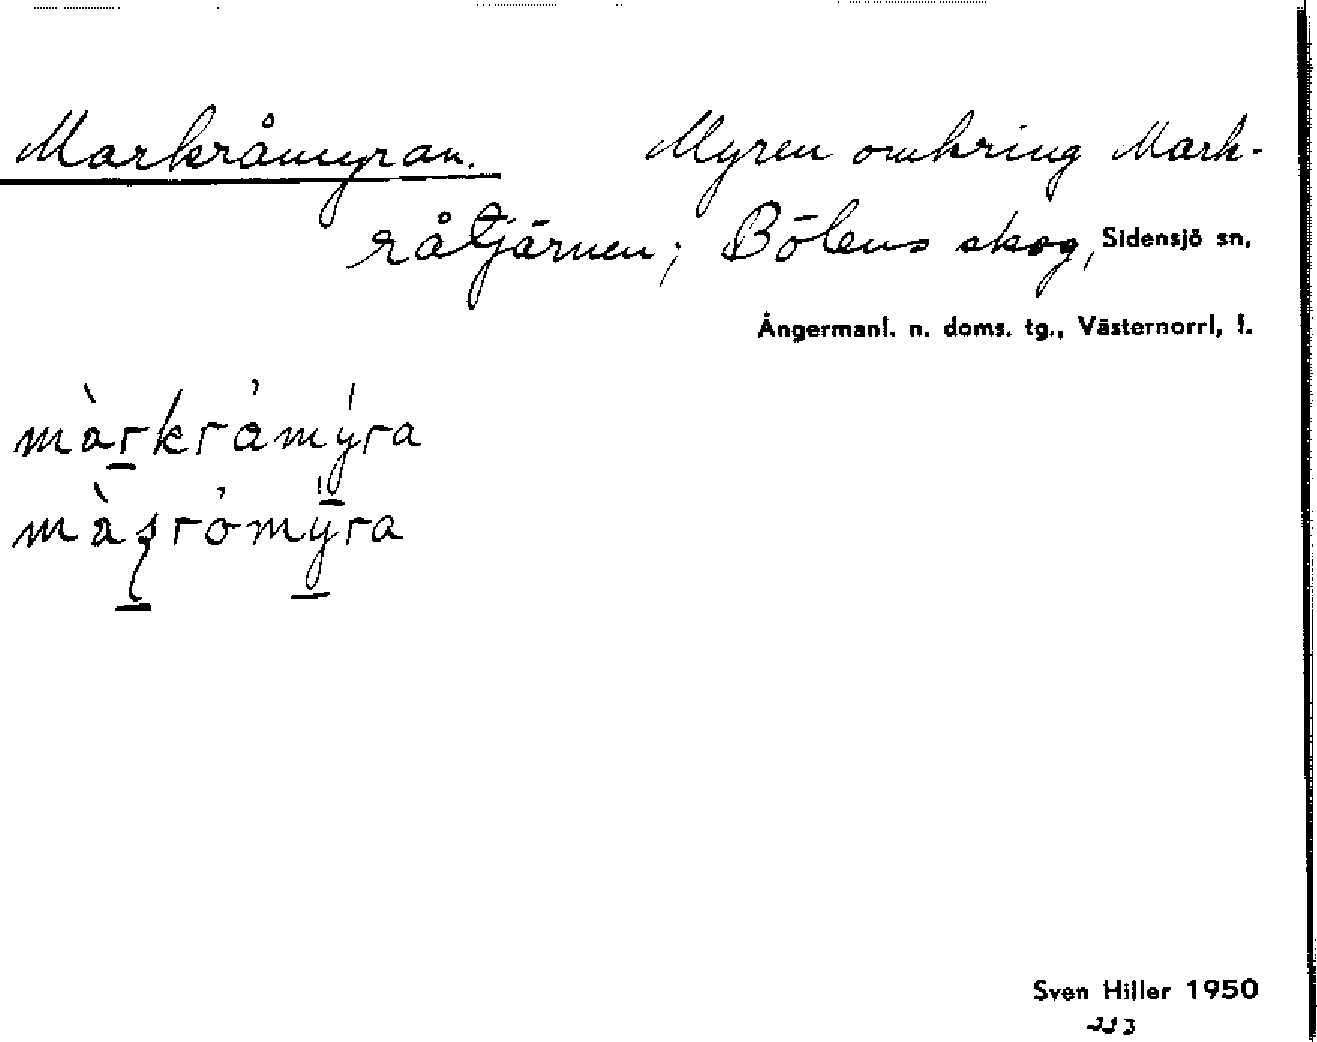 Markråmyran. Myren omkring Mark-
råtjärnen; Bölens skog, Sidensjö sn,
Ångermanl. n. doms. tg., Västernorrl, l.
màrkråmýra
Sven Hiller 1950